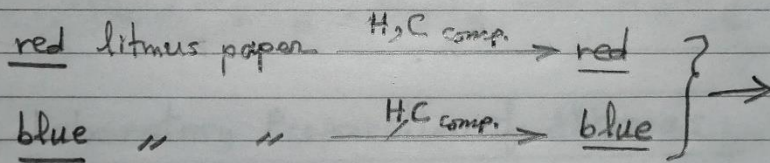 red litmus paper H,C comp. → red
blue " " H,C comp. → blue } →